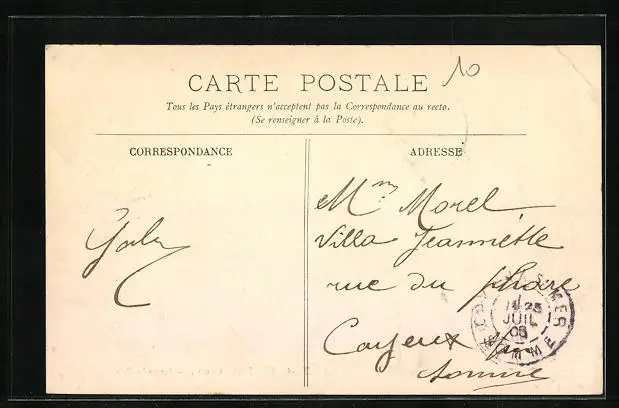 CARTE POSTALE
10
Tous les Pays étrangers n'acceptent pas la Correspondance au recto.
(Se renseigner à la Poste).
CORRESPONDANCE
ADRESSE
Mme Morel
Villa Jeannette
rue du phare
Cayeux
Somme
25
JUIL
08
SOMME